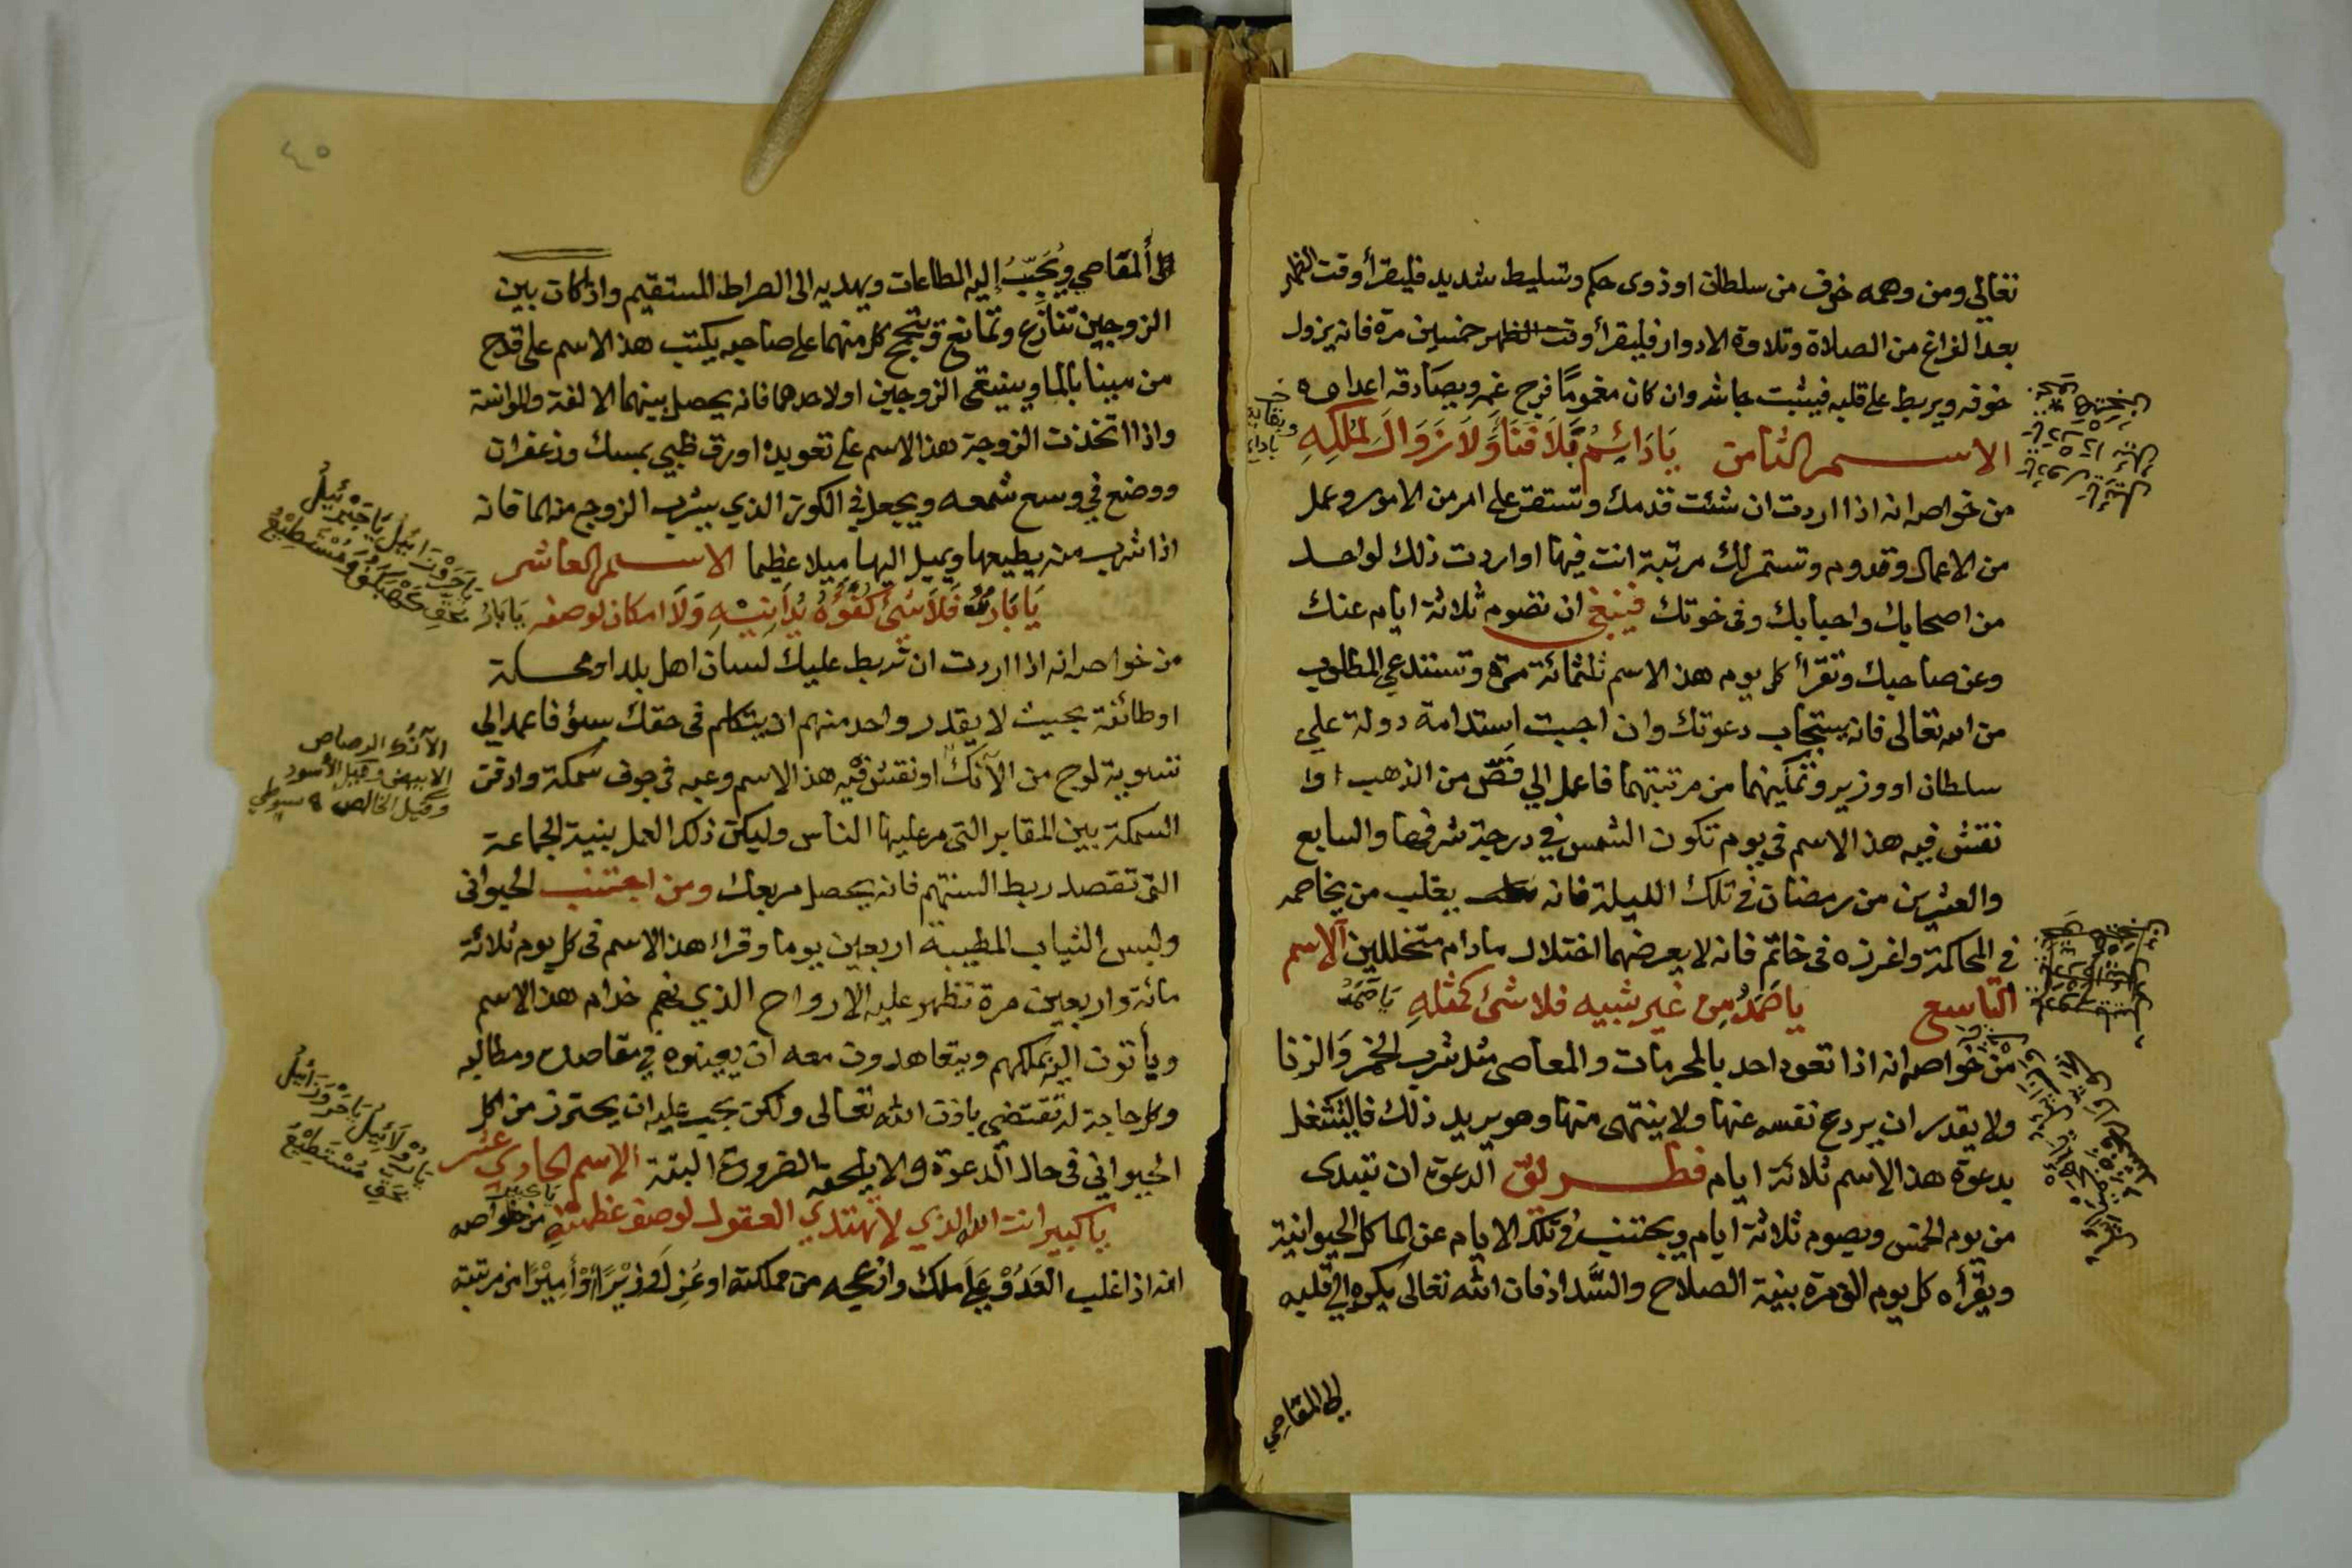 تعالى ومن وهمه خوف من سلطان او ذوى حكم وتسليط شديد فليقرأ وقت الظهر
بعد الفراغ من الصلاة وتلاوة الادوار فليقرأ وقت الظهر خمسين مرة فانه يزول
خوفه ويربط على قلبه فيثبت جاشه وان كان مغموما فرج غمه ويصادقه اعداه
الاسم الثامن يَا دَائِمُ بَلَا فَنَا وَلَا زَوَالَ لِمُلْكِهِ
وبقائه
من خواصه انه اذا اردت ان شئت قدمك وتستقر على امر من الامور وعمل
من الاعمال وقدوم وتستمر لك مرتبة انت فيها او اردت ذلك لواحد
من اصحابك واحبابك وفى خوتك فينبغي ان تصوم ثلاثة ايام عنك
وعن صاحبك وتقرأ كل يوم هذ الاسم ثلثمائة مرة وتستدعي المطلوب
من الله تعالى فانه يستجاب دعوتك وان احببت استدامة دولة على
سلطان او وزير وتمكينهما من مرتبتهما فاعمل الي فصّ من الذهب او
نقش فيه هذ الاسم في يوم تكون الشمس في درجة شرفها والسابع
والعشرين من رمضان في تلك الليلة فانه يغلب من يخاصمه
في المحاكمة واغرزه فى خاتم فانه لا يعرضهما اختلال مادام متخللين الاسم
التاسع يا صَمَدُ مِن غير شبيه فلا شئ كمثلهِ يَا صَمَدُ
من خواصه انه اذا تعود احد بالمحرمات والمعاصى مثل شرب الخمر وَالزنا
ولا يقدر ان يردع نفسه عنها ولا ينتهى منها وهو يريد ذلك فاليشتغل
بدعوة هذ الاسم ثلاثة ايام فطريق الدعوة ان تبتدى
من يوم الخمس ويصوم ثلاثة ايام ويجتنب في تلك الايام عن الماكل الحيوانية
ويقرأه كل يوم الف مرة بنية الصلاح والسَّداد فان الله تعالى يكره الي قلبه
الى المقاصي
٤٥
المقاصي ويُحَبِّبُ إليه الطاعات ويهديه الى الصراط المستقيم واذا كان بين
الزوجين تنازع وتمانع كل منهما على صاحبه يكتب هذ الاسم على قدح
من مينا بالما ويسقى الزوجين او لاحدهما فانه يحصل بينهما الالفة والموانسة
واذا اتخذت الزوجة هذ الاسم على تعويدة او رق ظبي بمسك وزعفران
ووضع في وسع شمعه ويجعل في الكوز الذي يشرب الزوج منه الما فانه
اذا شرب منه يطيعها ويميل اليها ميلا عظيما الاسم العاشر
يَا بَارُّ فَلَا شَئ كُفُؤُهُ يُدَانِيْهِ وَلَا امكان لوصفه يَا بَارُّ
من خواصه انه اذا اردت ان تربط عليك لسان اهل بلد او محلة
او طائفة بحيث لا يقدر واحد منهم ان يتكلم فى حقك سوؤ فاعمد الي
تسوية لوح من الآنك او نقش فيه هذ الاسم وعبه فى جوف سمكة وادفن
الآنُك الرصاص
الابيض وقيل الأسود
وقيل الخالص سيوطي
السمكة بين المقابر التى مر عليها الناس وليكن ذلك العمل بنية الجماعة
التى تقصد ربط السنتهم فانه يحصل مربعك ومن اجتنب الحيوانى
ولبس الثياب المطيبة اربعين يوما وقراء هذ الاسم فى كل يوم ثلاثة
مائة واربعين مرة تظهر عليه الارواح الذي هم خدام هذ الاسم
ويأتون اليه بملكهم ويتعاهدون معه ان يعينوه في مقاصده ومطالبه
وكل حاجة له تقتضي باذن الله تعالى ولكن يجب عليه ان يحترز من اكل
الحيواني فى حال الدعوة والا يلحقه الضرورة البتة الاسم الحاوي عشر
يا كبير انت الله الذي لا تهتدي العقول لوصف عظمته يا كبير من خواصه
انه اذا غلب العَدُوّ عَلَى ملك وازعجه من مملكته او عُزِلَ وَزِيْرًا أَوْ أَمِيْرًا من مرتبته